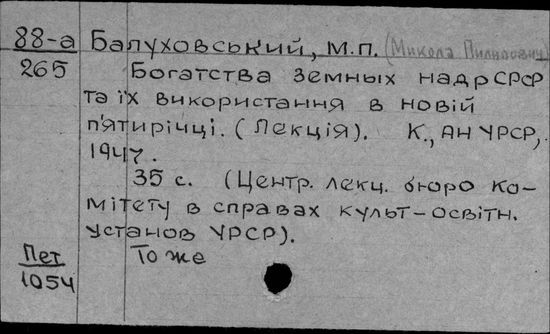 88-а Балуховський, М.П. (Микола Пилипович)
265 Богатства земных надр СРСР
та їх використання в новій
п'ятирічці. (Лекція). К., АН УРСР,
1947.
35 с. (Центр. лекц. бюро Ко-
мітету в справах культ-освітн.
установ УРСР).
Пет То же
1054